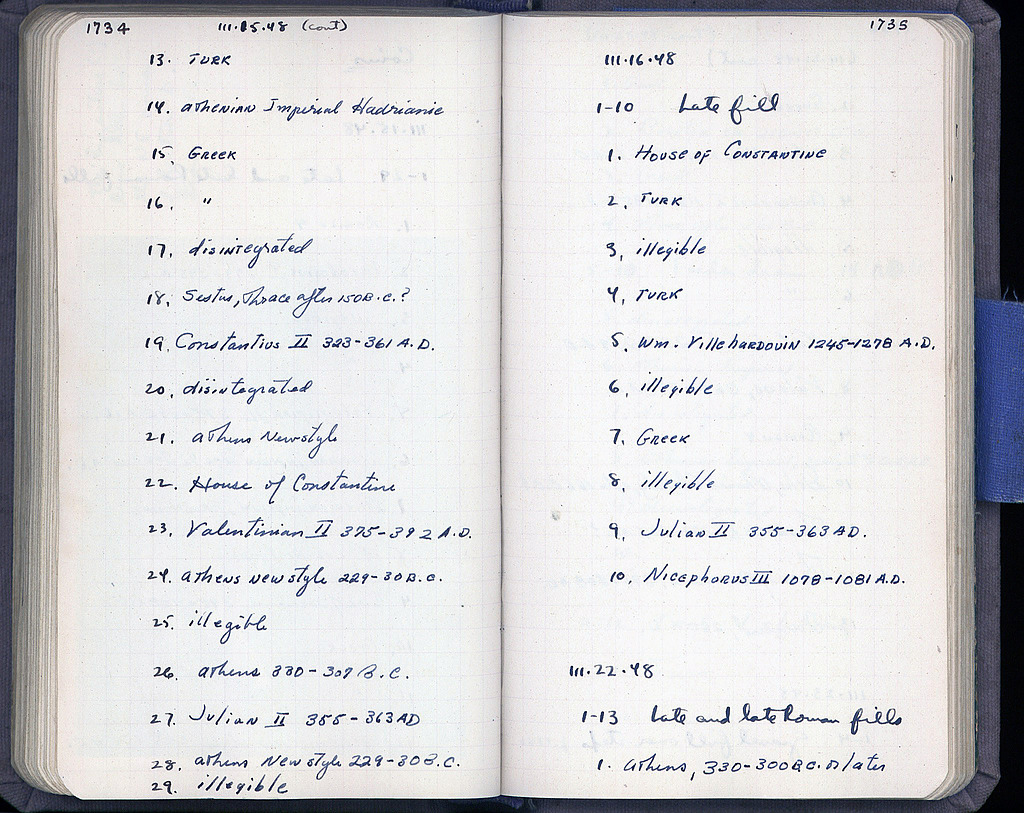 1734 III.15.48 (cont)
13. TURK
14. Athenian Imperial Hadrianic
15. GREEK
16. "
17. disintegrated
18. Sestus, Thrace after 150 B.C.?
19. Constantius II 323-361 A.D.
20. disintegrated
21. Athens Newstyle
22. House of Constantine
23. Valentinian II 375-392 A.D.
24. Athens newstyle 229-30 B.C.
25. illegible
26. Athens 330-307 B.C.
27. Julian II 355-363 AD
28. Athens New style 229-30 B.C.
29. illegible
1735
III.16.48
1-10 Late fill
1. HOUSE OF CONSTANTINE
2. TURK
3. illegible
4. TURK
5. Wm. Villehardouin 1245-1278 A.D.
6. illegible
7. GREEK
8. illegible
9. Julian II 355-363 AD.
10. NICEPHORUS III 1078-1081 A.D.
III.22.48
1-13 Late and late Roman fills
1. Athens, 330-300 B.C. or later